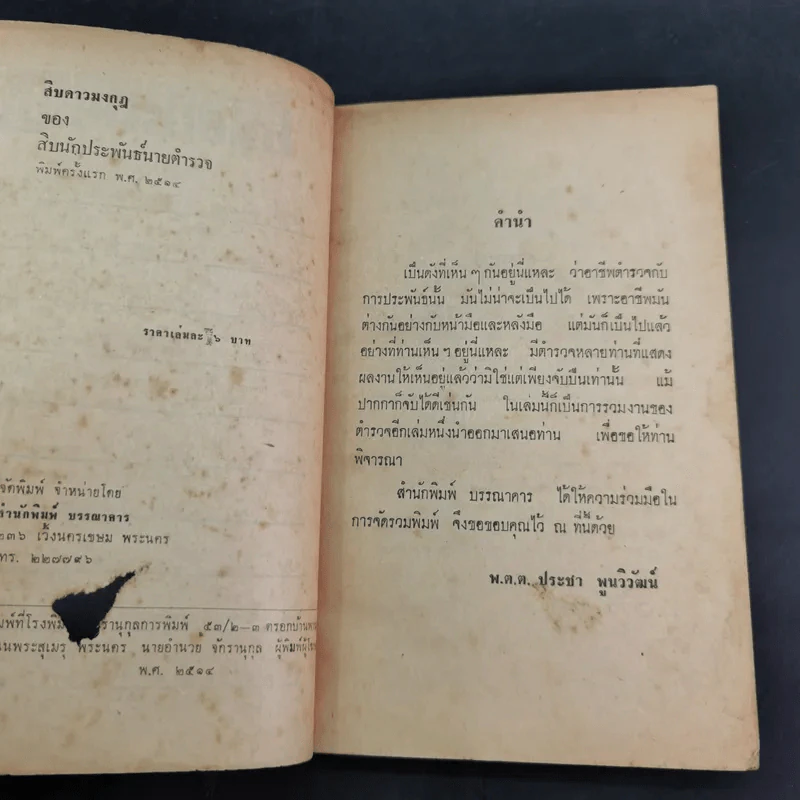 สิบดาวมงกุฎ
ของ
สิบนักประพันธ์นายตำรวจ
พิมพ์ครั้งแรก พ.ศ. ๒๕๑๔
ราคาเล่มละ ๖ บาท
จัดพิมพ์ จำหน่ายโดย
สำนักพิมพ์ บรรณาคาร
๒๓๖ เวิ้งนครเขษม พระนคร
โทร. ๒๒๗๗๙๖
รานุกูลการพิมพ์ ๕๓/๒–๓ ตรอกบ้าน
นนพระสุเมรุ พระนคร นายอำนวย จักรานุกูล
พ.ศ. ๒๕๑๔
คำนำ
เป็นดังที่เห็น ๆ กันอยู่นี่แหละ ว่าอาชีพตำรวจกับ
การประพันธ์นั้น มันไม่น่าจะเป็นไปได้ เพราะอาชีพมัน
ต่างกันอย่างกับหน้ามือและหลังมือ แต่มันก็เป็นไปแล้ว
อย่างที่ท่านเห็น ๆ อยู่นี่แหละ มีตำรวจหลายท่านที่แสดง
ผลงานให้เห็นอยู่แล้วว่ามิใช่แต่เพียงจับปืนเท่านั้น แม้
ปากกาก็จับได้ดีเช่นกัน ในเล่มนี้ก็เป็นการรวมงานของ
ตำรวจอีกเล่มหนึ่งนำออกมาเสนอท่าน เพื่อขอให้ท่าน
พิจารณา
สำนักพิมพ์ บรรณาคาร ได้ให้ความร่วมมือใน
การจัดรวมพิมพ์ จึงขอขอบคุณไว้ ณ ที่นี้ด้วย
พ.ต.ต. ประชา พูนวิวัฒน์